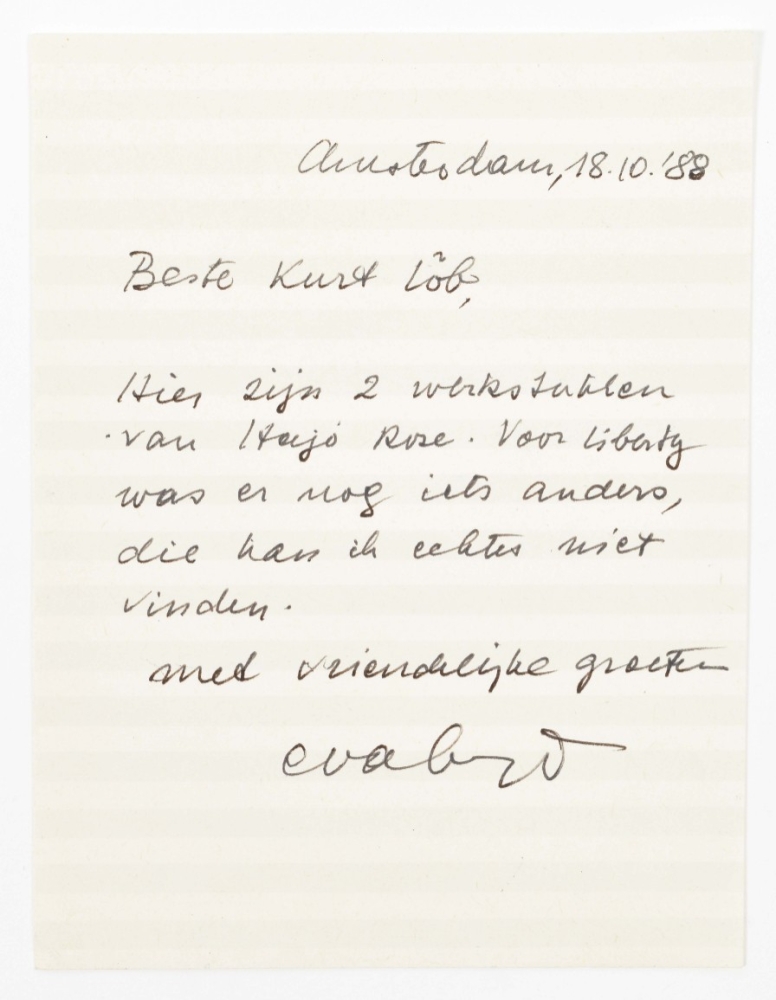 Amsterdam, 18.10.'88
Beste Kurt Löb,
Hier zijn 2 werkstukken
van Hajo Rose. Voor Liberty
was er nog iets anders,
die kan ik echter niet
vinden.
met vriendelijke groeten